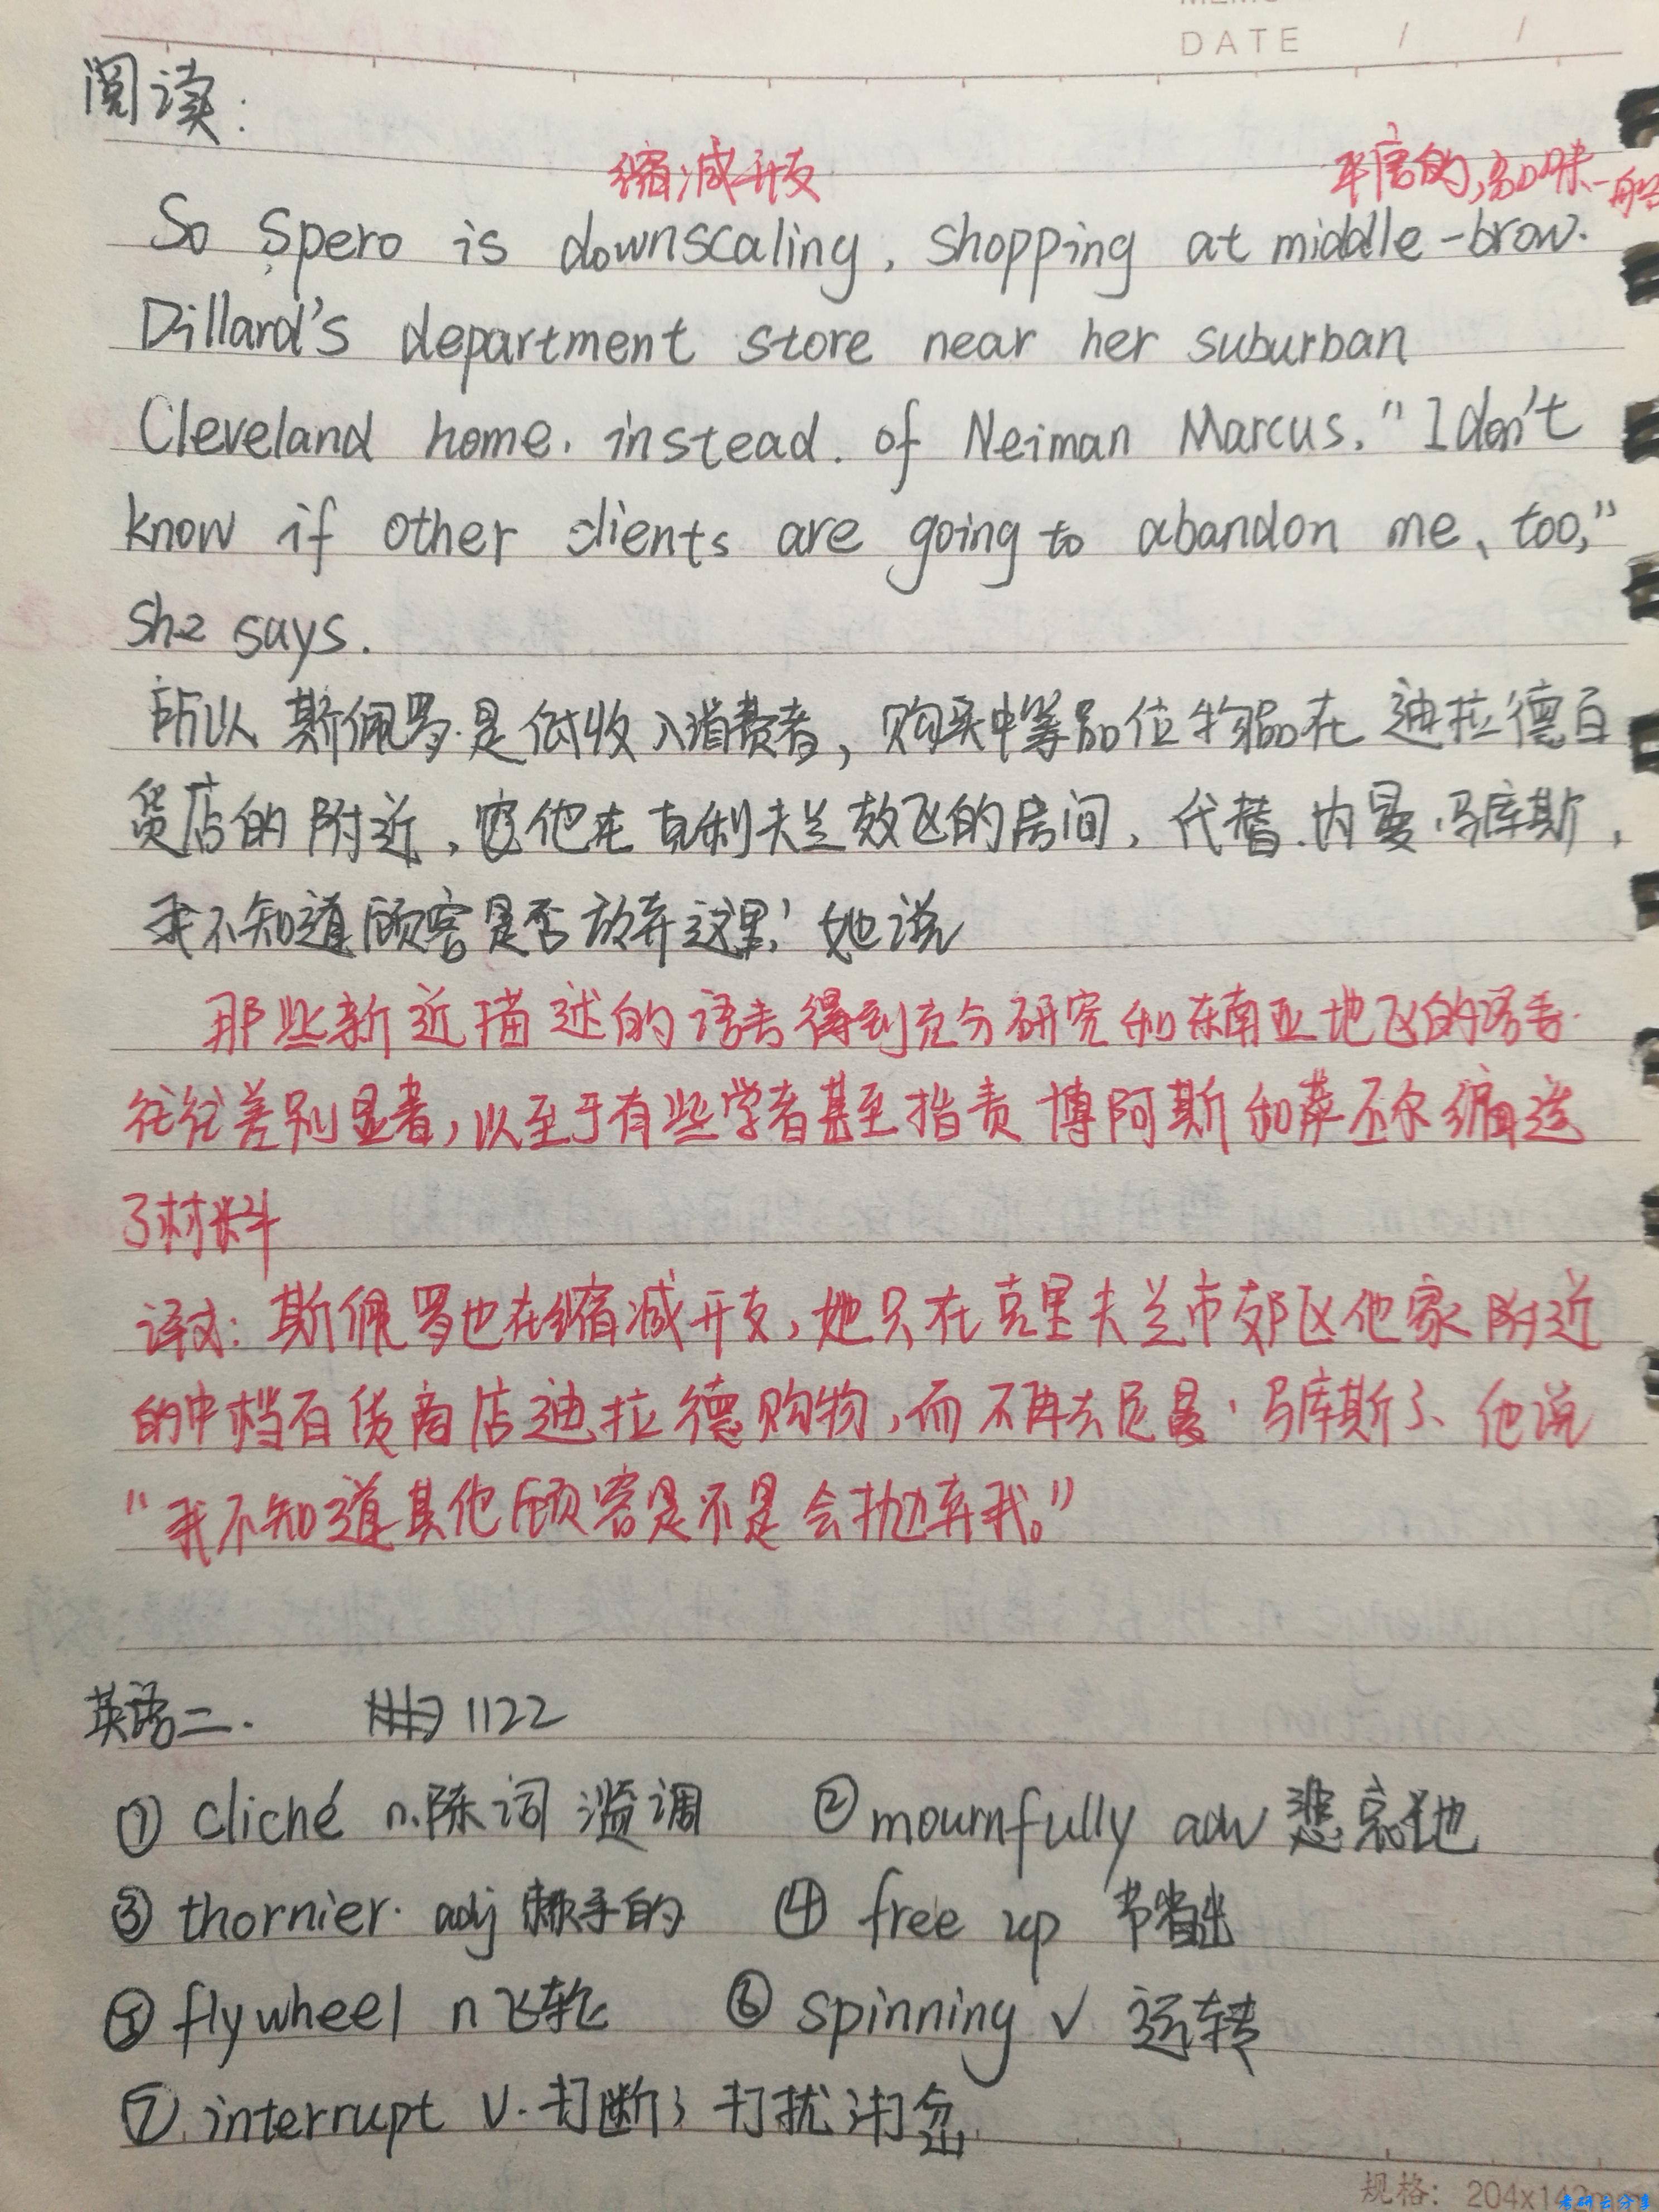 DATE / /
阅读:
缩减开支
平庸的,品味一般
So Spero is downscaling, shopping at middle-brow.
Dillard's department store near her suburban
Cleveland home. instead. of Neiman Marcus. "I don't
know if other clients are going to abandon me, too,"
she says.
所以 斯佩罗是低收入消费者，购买中等品位物品在 迪拉德百
货店的附近，他在克利夫兰效区的房间，代替.内曼·马库斯，
我不知道顾客是否放弃这里,' 她说
那些新近描述的语言得到充分研究和东南亚地区的语言.
往往差别显著,以至于有些学者甚至指责 博阿斯和萨丕尔编造
了材料
译文: 斯佩罗也在缩减开支,她只在克里夫兰市郊区他家附近
的中档百货商店迪拉德购物,而不再去尼曼·马库斯了、他说
"我不知道其他顾客是不是会抛弃我。"
英语二. 1122
① cliché n.陈词滥调 ② mournfully adv 悲哀地
③ thornier. adj 棘手的 ④ free up 节省出
⑤ flywheel n 飞轮 ⑥ spinning v 运转
⑦ interrupt v.打断; 打扰;打岔
规格: 204x142mm
考研云分享